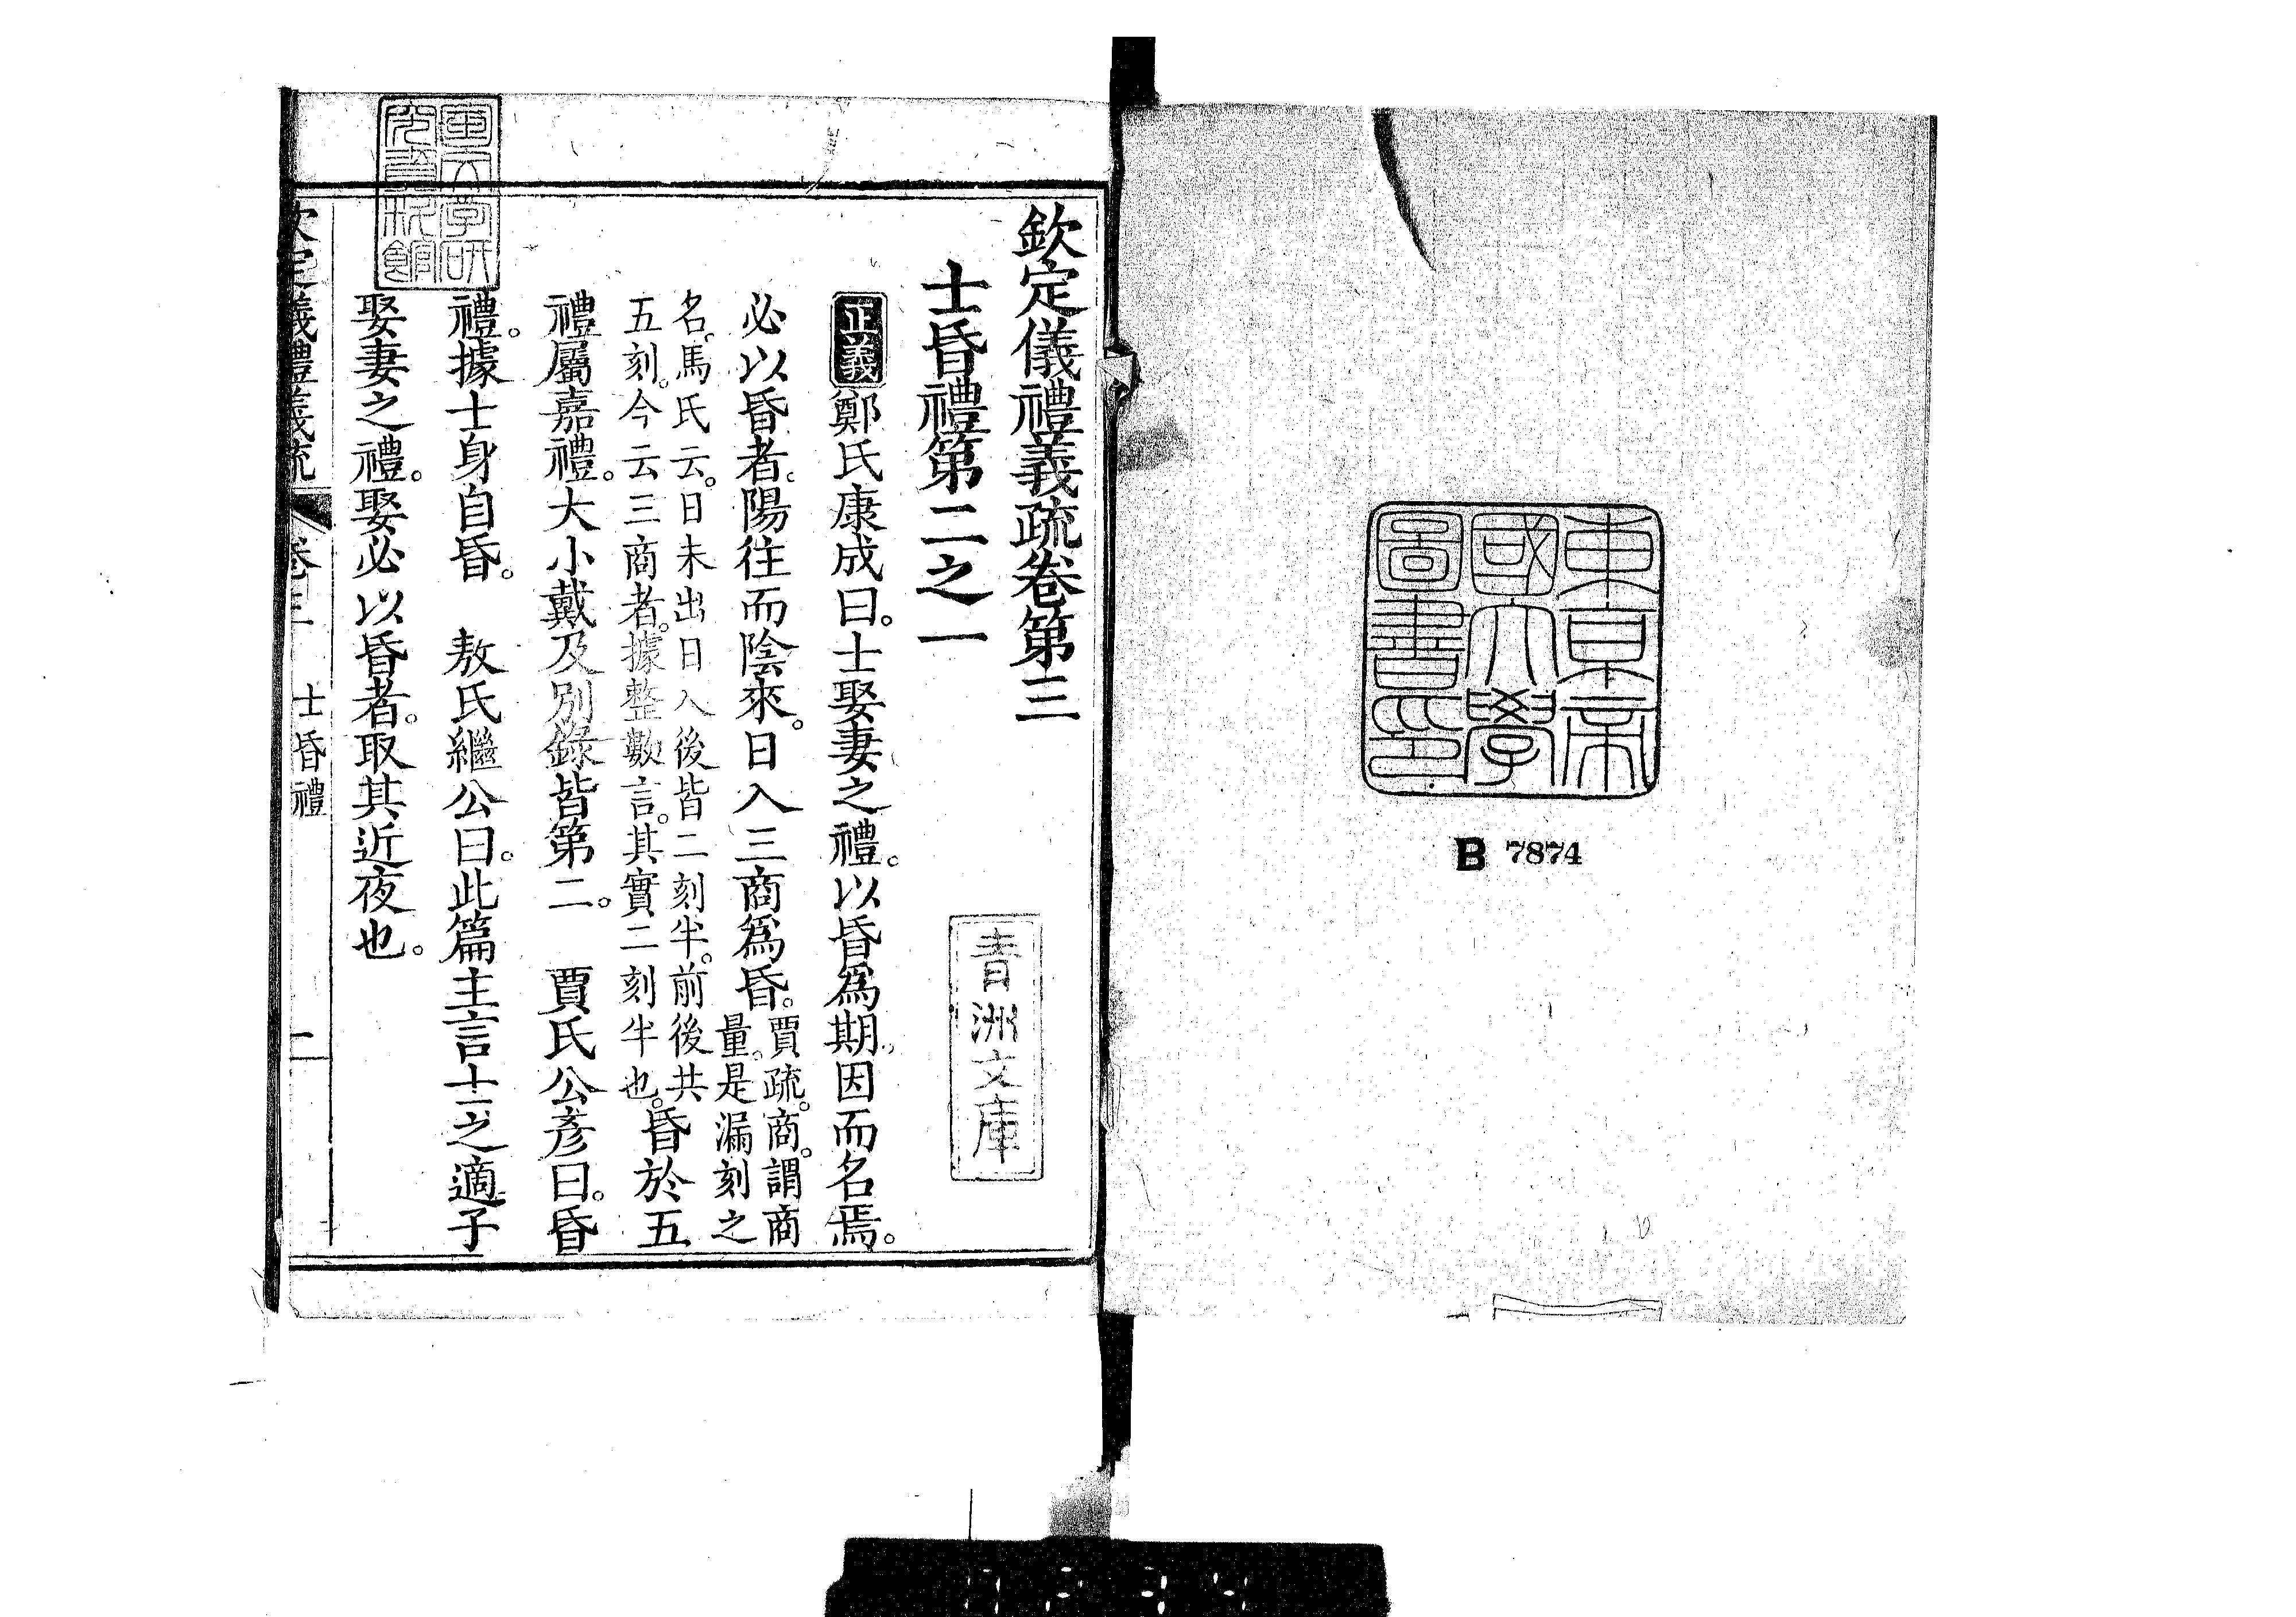 東京帝
國大學
圖書印
B 7874
欽定儀禮義疏卷第三
士昏禮第二之一
青洲文庫
正義鄭氏康成曰。士娶妻之禮。以昏爲期。因而名焉。
必以昏者。陽往而陰來。日入三商爲昏。賈疏。商。謂商
量。是漏刻之
名。馬氏云。日未出日入後皆二刻半。前後共
五刻。今云三商者。據整數言。其實二刻半也。昏於五
禮屬嘉禮。大小戴及別錄皆第二。 賈氏公彥曰。昏
禮。據士身自昏。 敖氏繼公曰。此篇主言士之適子
娶妻之禮。娶必以昏者。取其近夜也。
欽定儀禮義疏 卷三 士昏禮 一